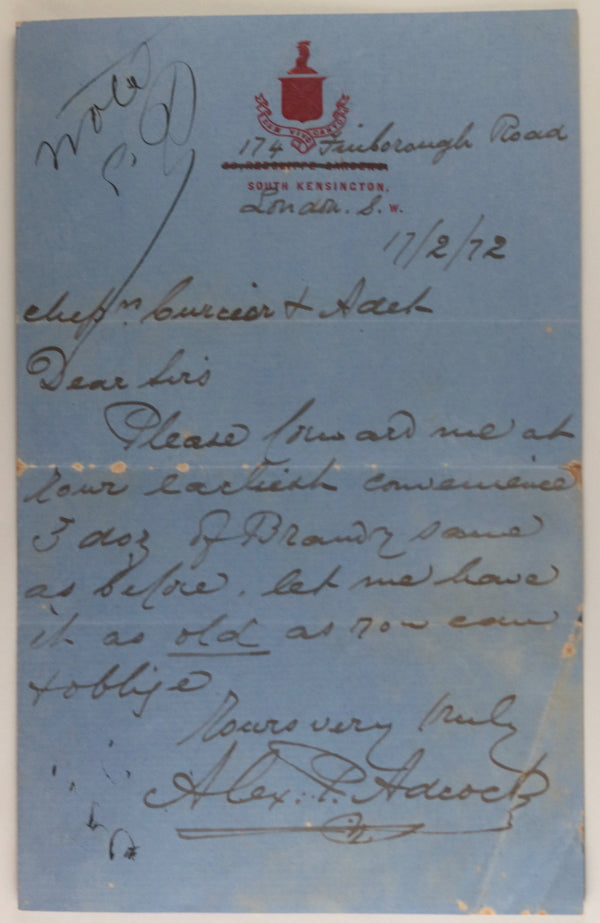 Note
174 Finborough Road
SOUTH KENSINGTON,
London. S. W.
17/2/72
Messrs Curcier & Adet
Dear Sirs
Please forward me at
your earliest convenience
3 doz of Brandy same
as before. let me have
it as old as you can
& oblige
Yours very truly
Alex. P. Adcock